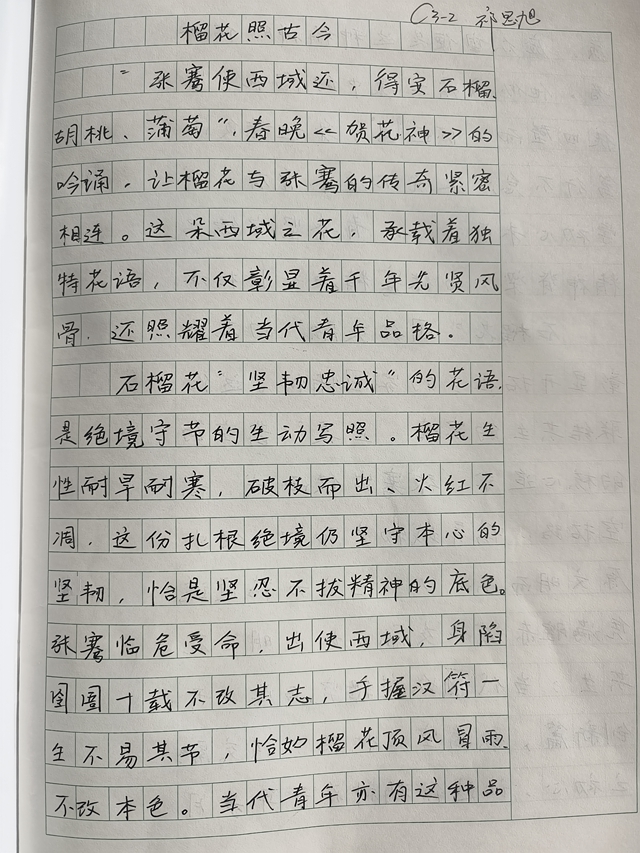 C3-2 祁思旭
榴花照古今
“张骞使西域还，得安石榴、
胡桃、蒲萄”，春晚《贺花神》的
吟诵，让榴花与张骞的传奇紧密
相连。这朵西域之花，承载着独
特花语，不仅彰显着千年先贤风
骨，还照耀着当代青年品格。
石榴花“坚韧忠诚”的花语，
是绝境守节的生动写照。榴花生
性耐旱耐寒，破枝而出、火红不
凋，这份扎根绝境仍坚守本心的
坚韧，恰是坚忍不拔精神的底色。
张骞临危受命，出使西域，身陷
囹圄十载不改其志，手握汉符一
生不易其节，恰如榴花顶风冒雨、
不改本色。当代青年亦有这种品